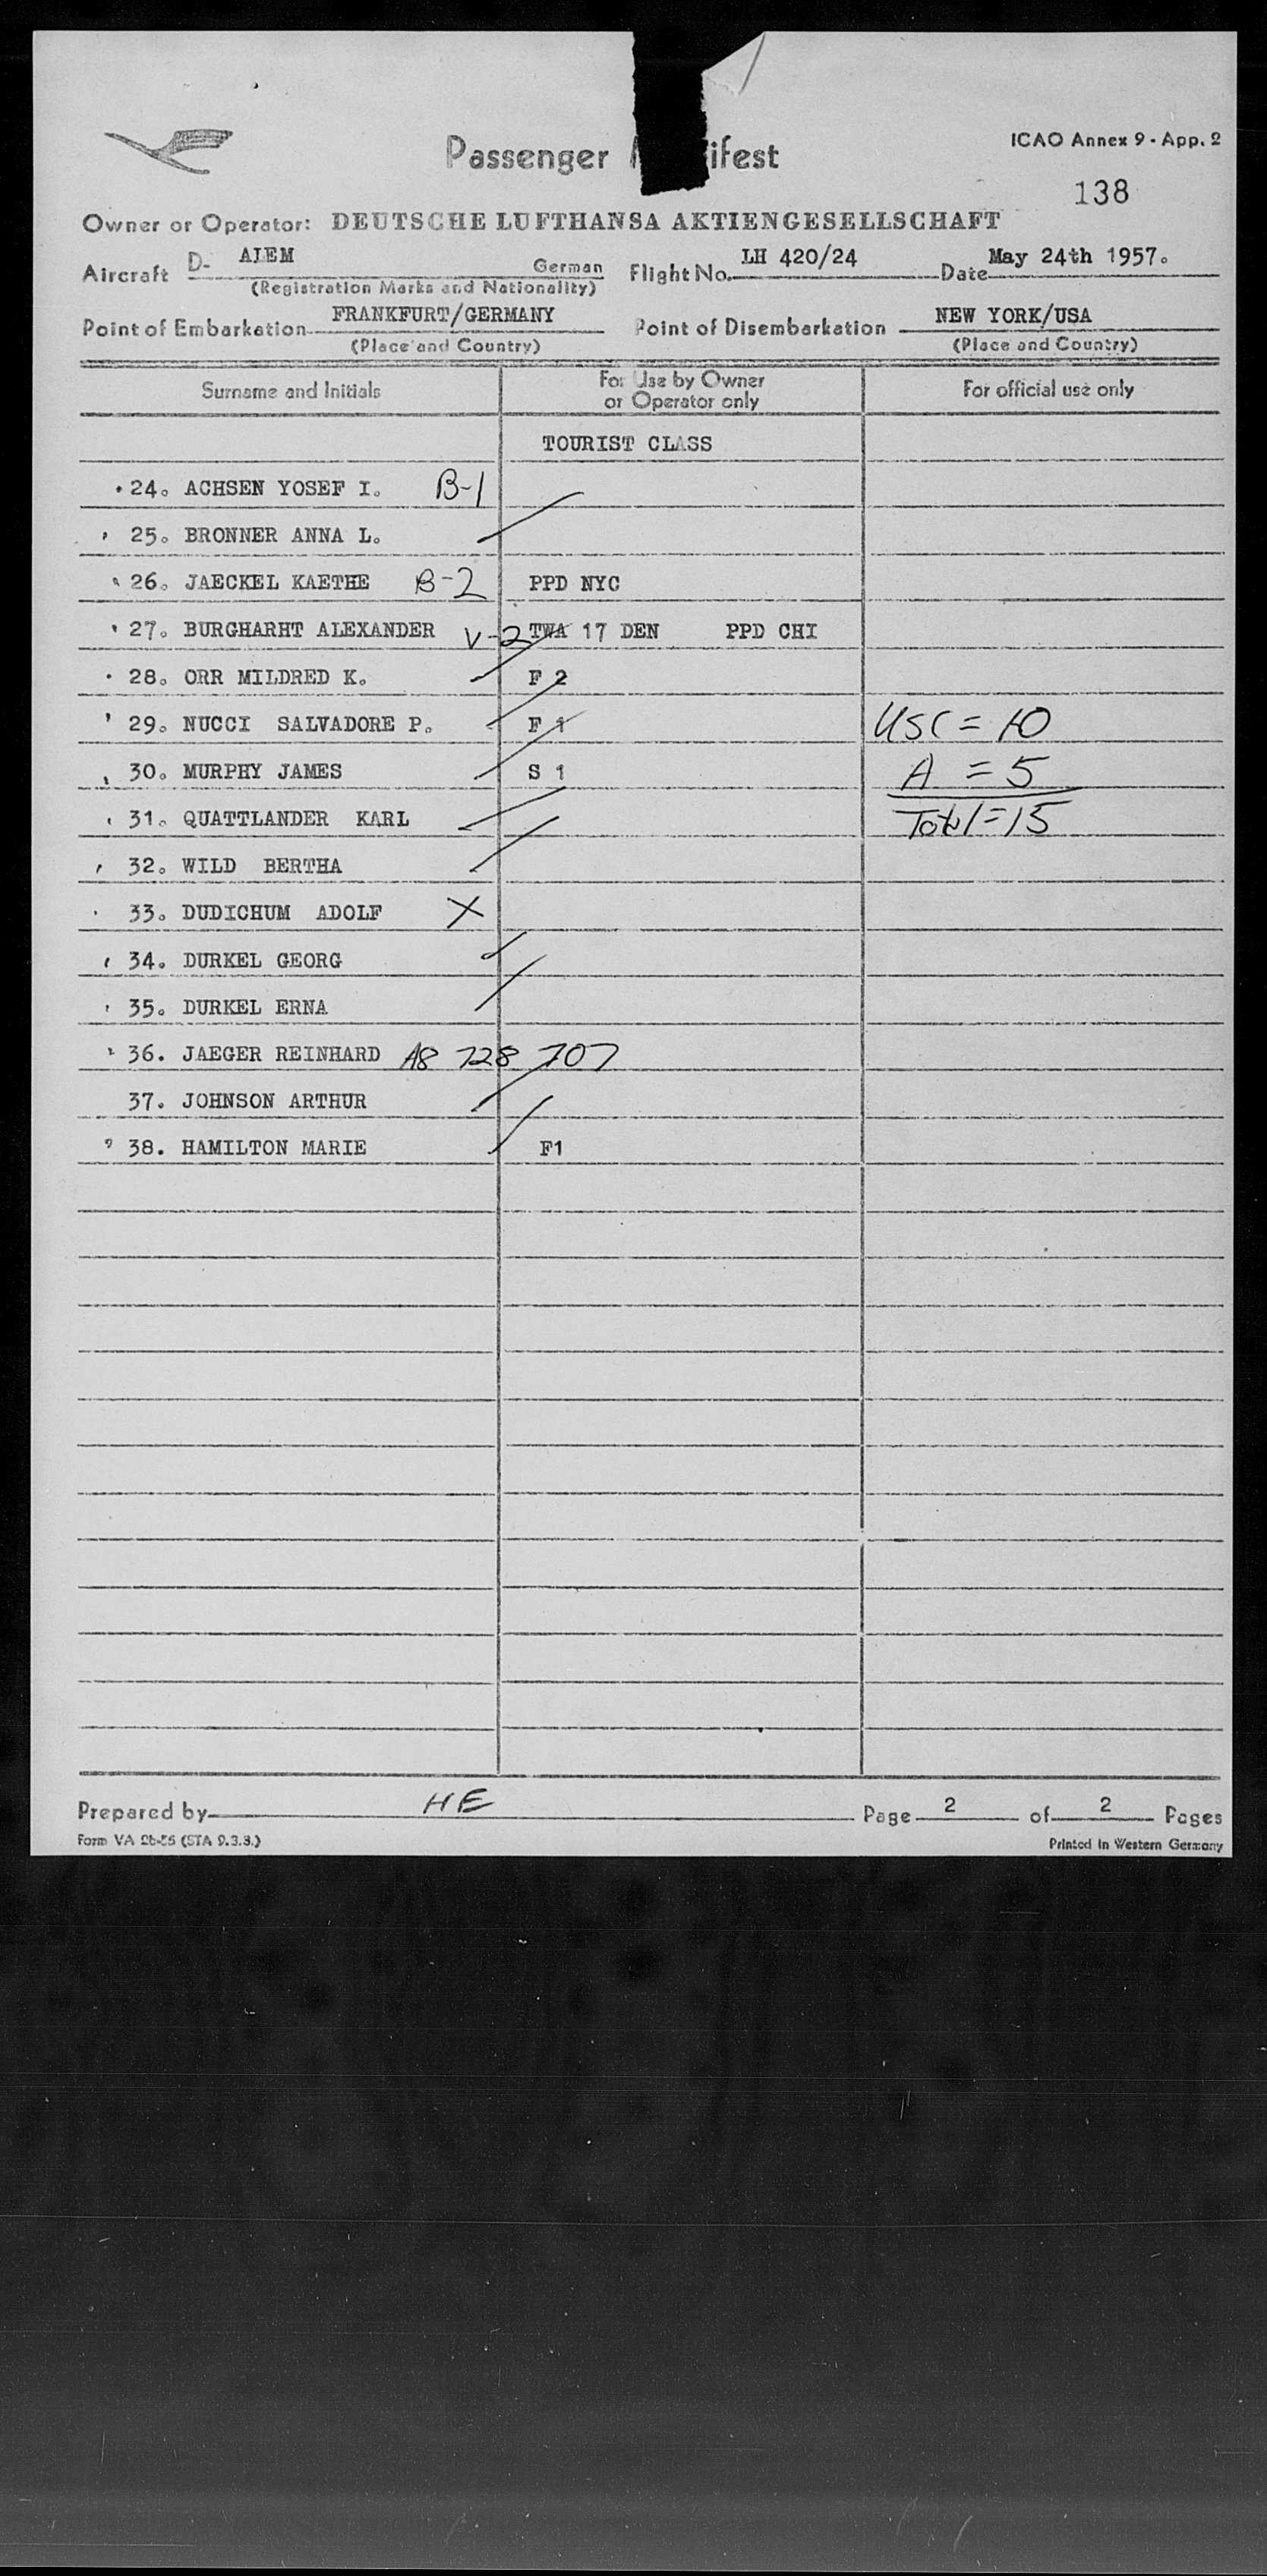 Passenger ifest
ICAO Annex 9 - App. 2
138
Owner or Operator: DEUTSCHE LUFTHANSA AKTIENGESELLSCHAFT
Aircraft D- ALEM German Flight No. LH 420/24 Date May 24th 1957.
(Registration Marks and Nationality)
Point of Embarkation FRANKFURT/GERMANY Point of Disembarkation NEW YORK/USA
(Place and Country) (Place and Country)
Surname and Initials For Use by Owner or Operator only For official use only
TOURIST CLASS
24. ACHSEN YOSEF I. B-1
25. BRONNER ANNA L.
26. JAECKEL KAETHE B-2 PPD NYC
27. BURGHARHT ALEXANDER V-2 TWA 17 DEN PPD CHI
28. ORR MILDRED K. F 2
29. NUCCI SALVADORE P. F 1 USC = 10
30. MURPHY JAMES S 1 A = 5
31. QUATTLANDER KARL Total = 15
32. WILD BERTHA
33. DUDICHUM ADOLF X
34. DURKEL GEORG
35. DURKEL ERNA
36. JAEGER REINHARD A8 728 707
37. JOHNSON ARTHUR
38. HAMILTON MARIE F1
Prepared by HE Page 2 of 2 Pages
Form VA 2b-56 (STA 9.3.3.) Printed in Western Germany